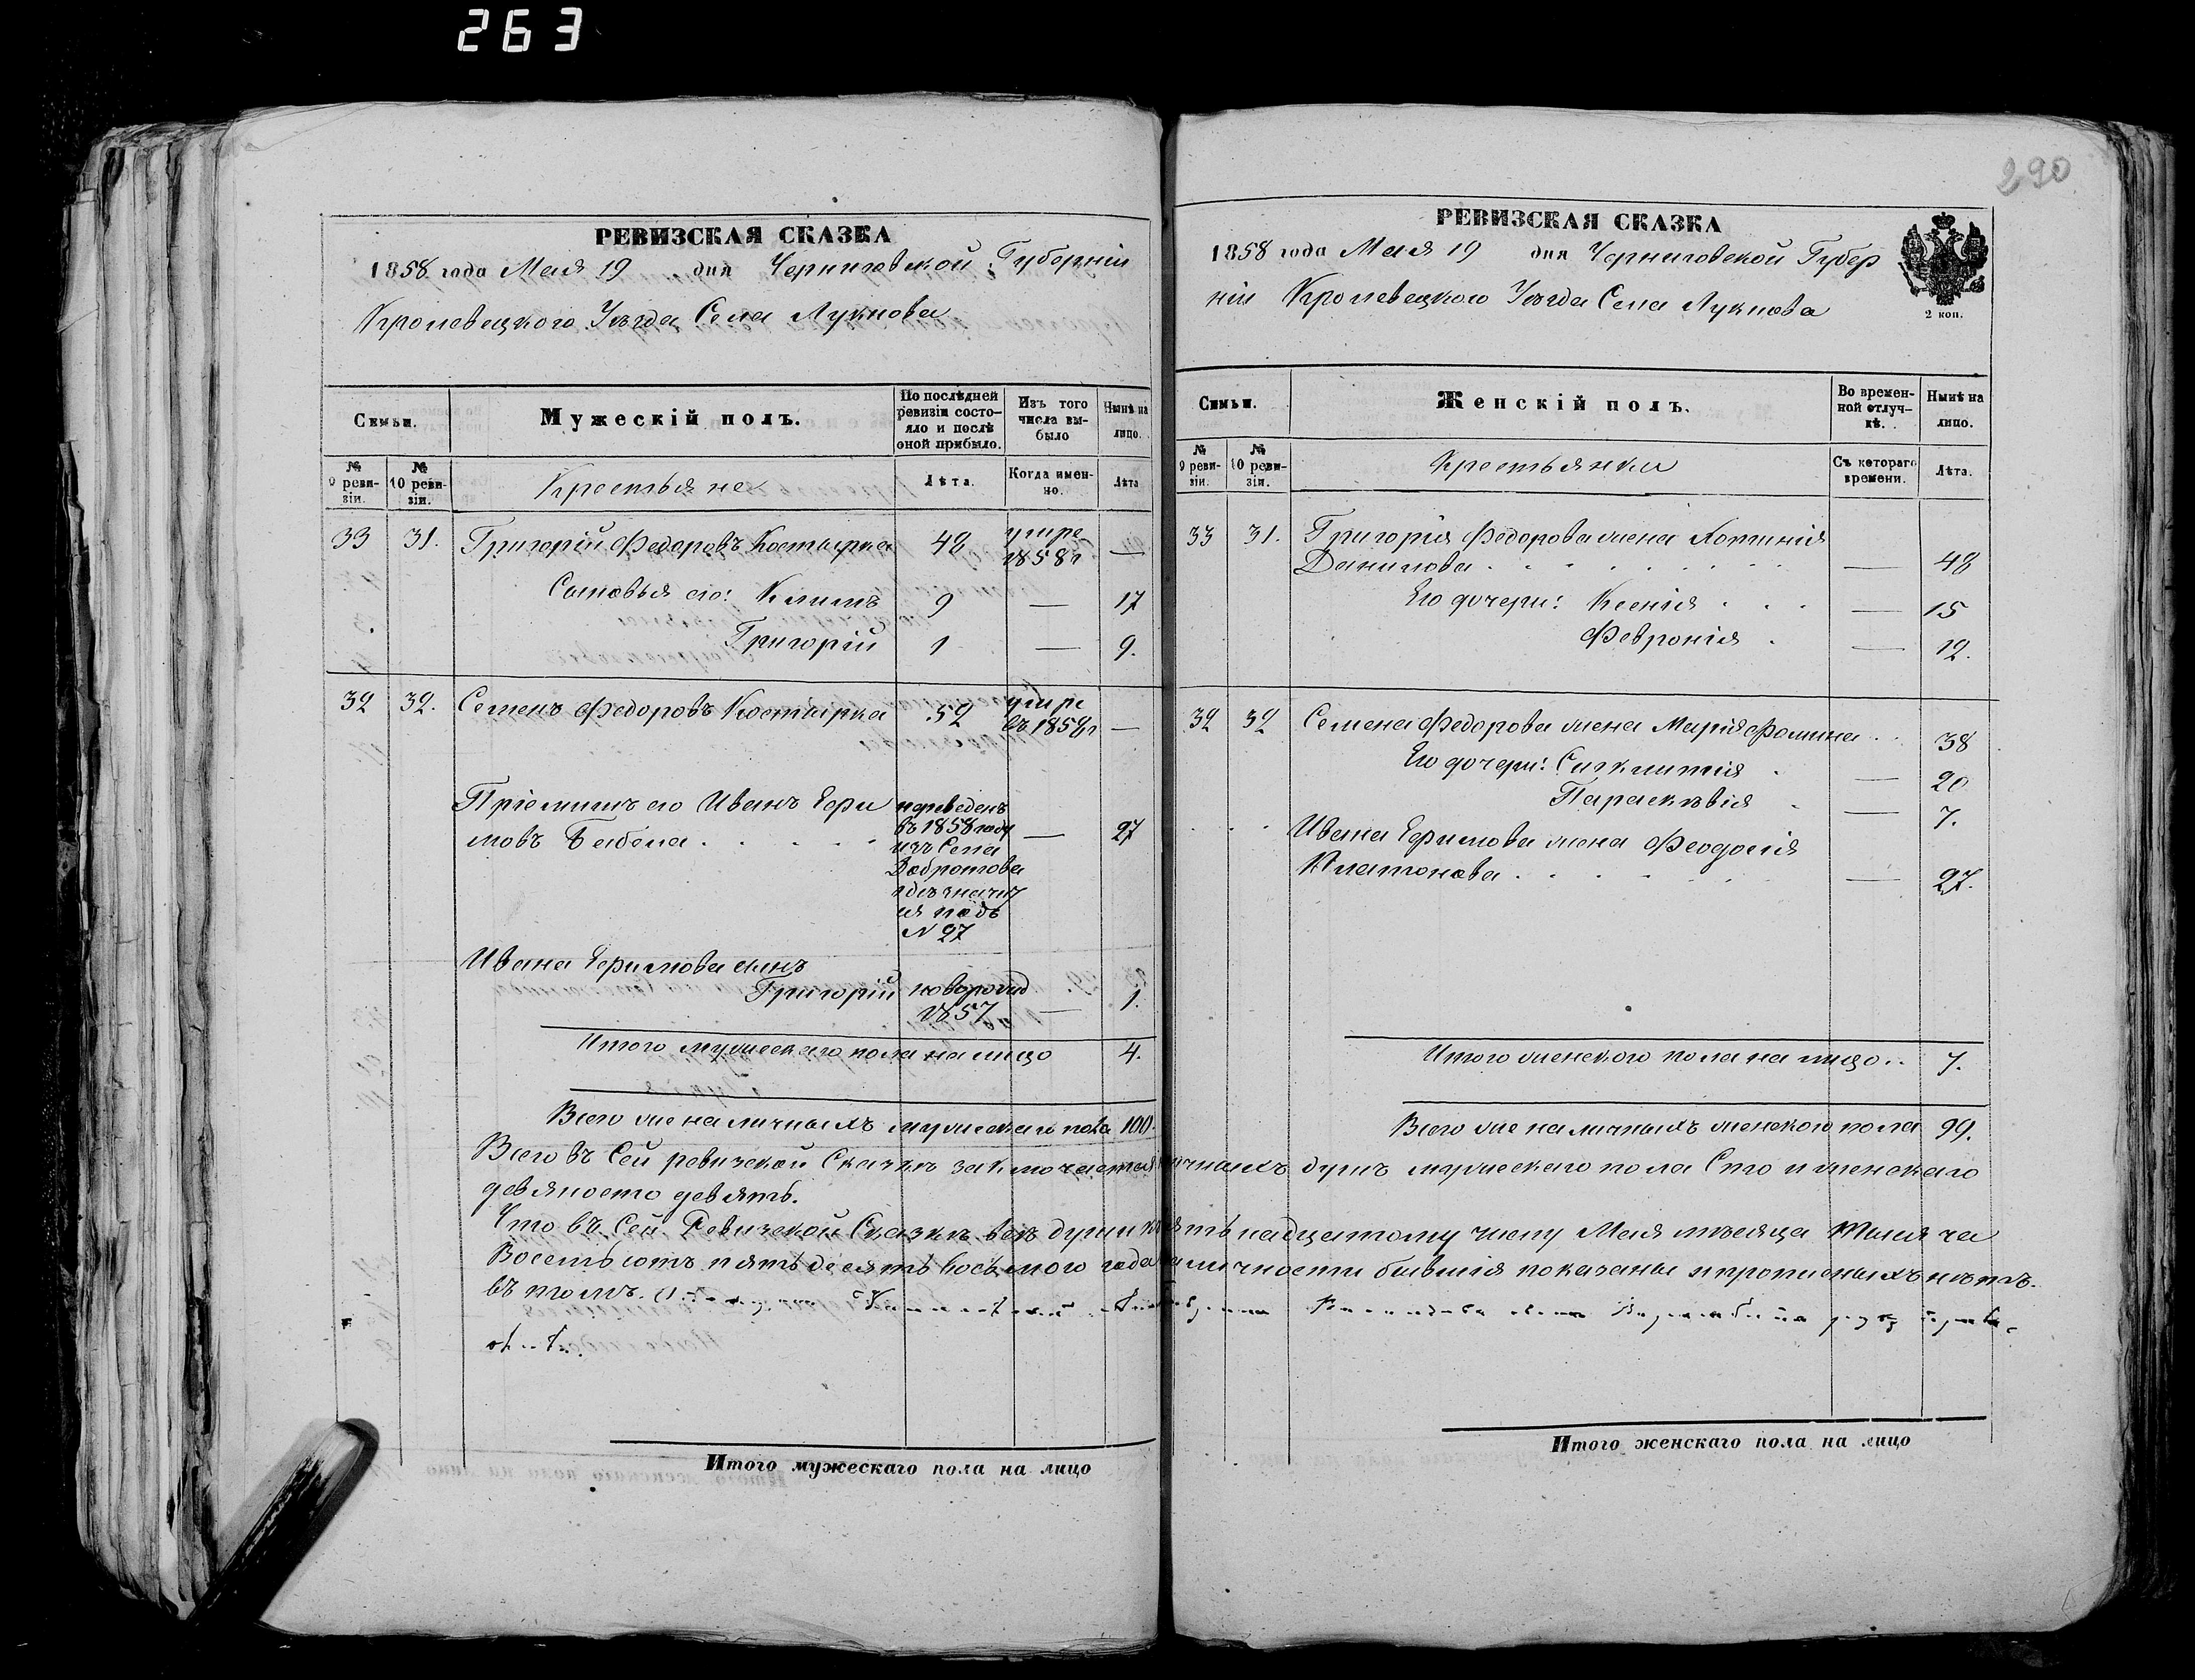 263
РЕВИЗСКАЯ СКАЗКА
1858 года Мая 19 дня Черниговской Губерніи
Кролевецкого Уѣзда Села Лукнова
Семьи.
Мужескій полъ.
По послѣдней ревизіи состояло и послѣ оной прибыло.
Изъ того числа выбыло
Нынѣ на лицо.
№ 9 ревизіи.
№ 10 ревизіи.
Крестьяне
Лѣта.
Когда именно.
Лѣта
33 31. Григорій Федоровъ Костырка 48 умре 1858 г —
Сыновья его: Климъ 9 — 17
Григорій 1 — 9.
32 32. Семенъ Федоровъ Костырка 52 умре въ 1858 г —
Пріемышъ его Иванъ Ефи
мовъ Бабела . . . . . — 27
переведенъ
въ 1858 году
изъ Села
Добротова
гдѣ значит
ся подъ
N 27
Ивана Ефимова сынъ
Григорій новорожд 1857 — 1.
Итого мужескаго пола на лицо 4.
Всего же наличныхъ мужескаго пола 100.
290
РЕВИЗСКАЯ СКАЗКА
1858 года Мая 19 дня Черниговской Губер
ніи Кролевецкого Уѣзда Села Лукнова
2 коп.
Семьи.
Женскій полъ.
Во временной отлучкѣ.
Нынѣ на лицо.
№ 9 ревизіи.
№ 10 ревизіи.
Крестьянки
Съ котораго времени.
Лѣта.
33 31. Григорія Федорова жена Хотинія
Данилова . . . . . . . — 48
Его дочери: Ксенія . . . — 15
Февронія . — 12.
32 32 Семена Федорова жена Марія Фомина . . 38
Его дочери: Сигклитія . — 20
Параскѣвія . — 7.
Ивана Ефимова жена Феодосія
Платонова . . . . . . — 27.
Итого женского пола на лицо.. 7.
Всего же наличныхъ женского пола 99.
Всего въ Сей ревизской Сказкѣ заключается личныхъ душъ мужескаго пола Сто и женскаго
девяносто девять.
Что въ Сей Ревизской Сказкѣ всѣ души къ пятьнадцатому числу Мая мѣсяца тысяча
Восемьсотъ пятьдесятъ восьмого года наличности бывшія показаны и прописныхъ нѣтъ.
въ томъ.
Итого мужескаго пола на лицо
Итого женскаго пола на лицо